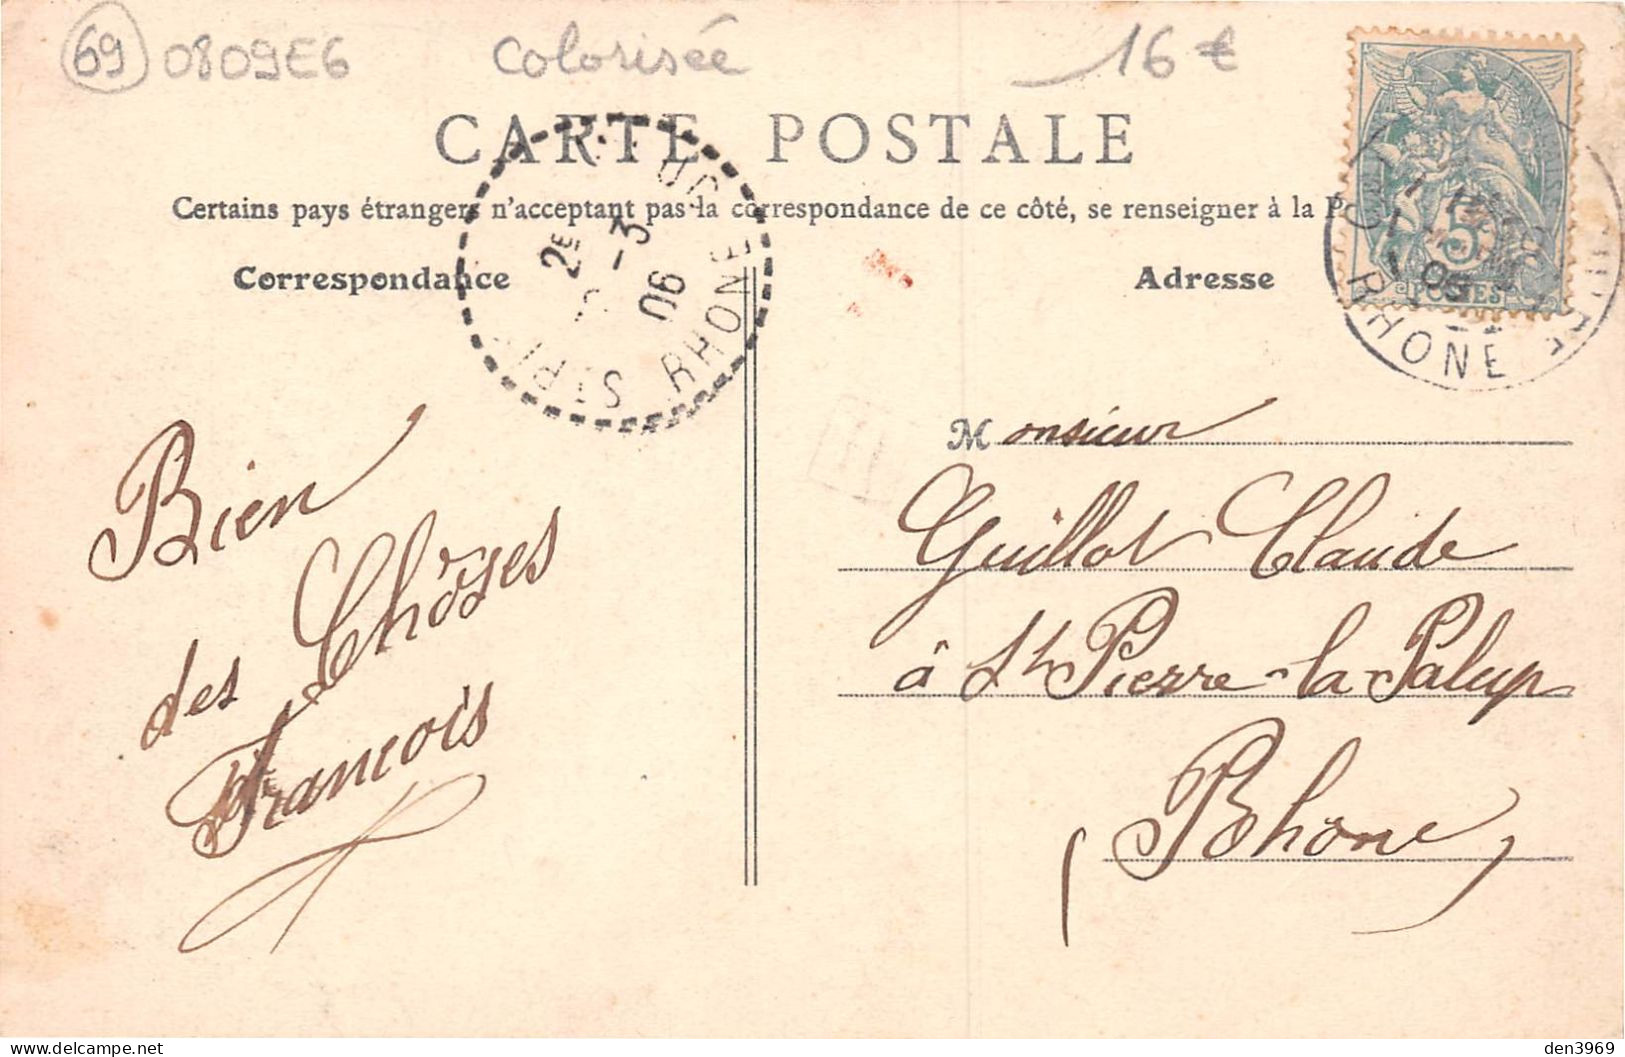 69 0809E6 colorisée 16 €
CARTE POSTALE
Certains pays étrangers n'acceptant pas la correspondance de ce côté, se renseigner à la
Correspondance
Adresse
2E
-3
06
RHONE
5
POSTES
RHONE
Bien
des Chôses
Francois
Monsieur
Guillot Claude
à St Pierre-la-Palup
(Rhone)
den3969